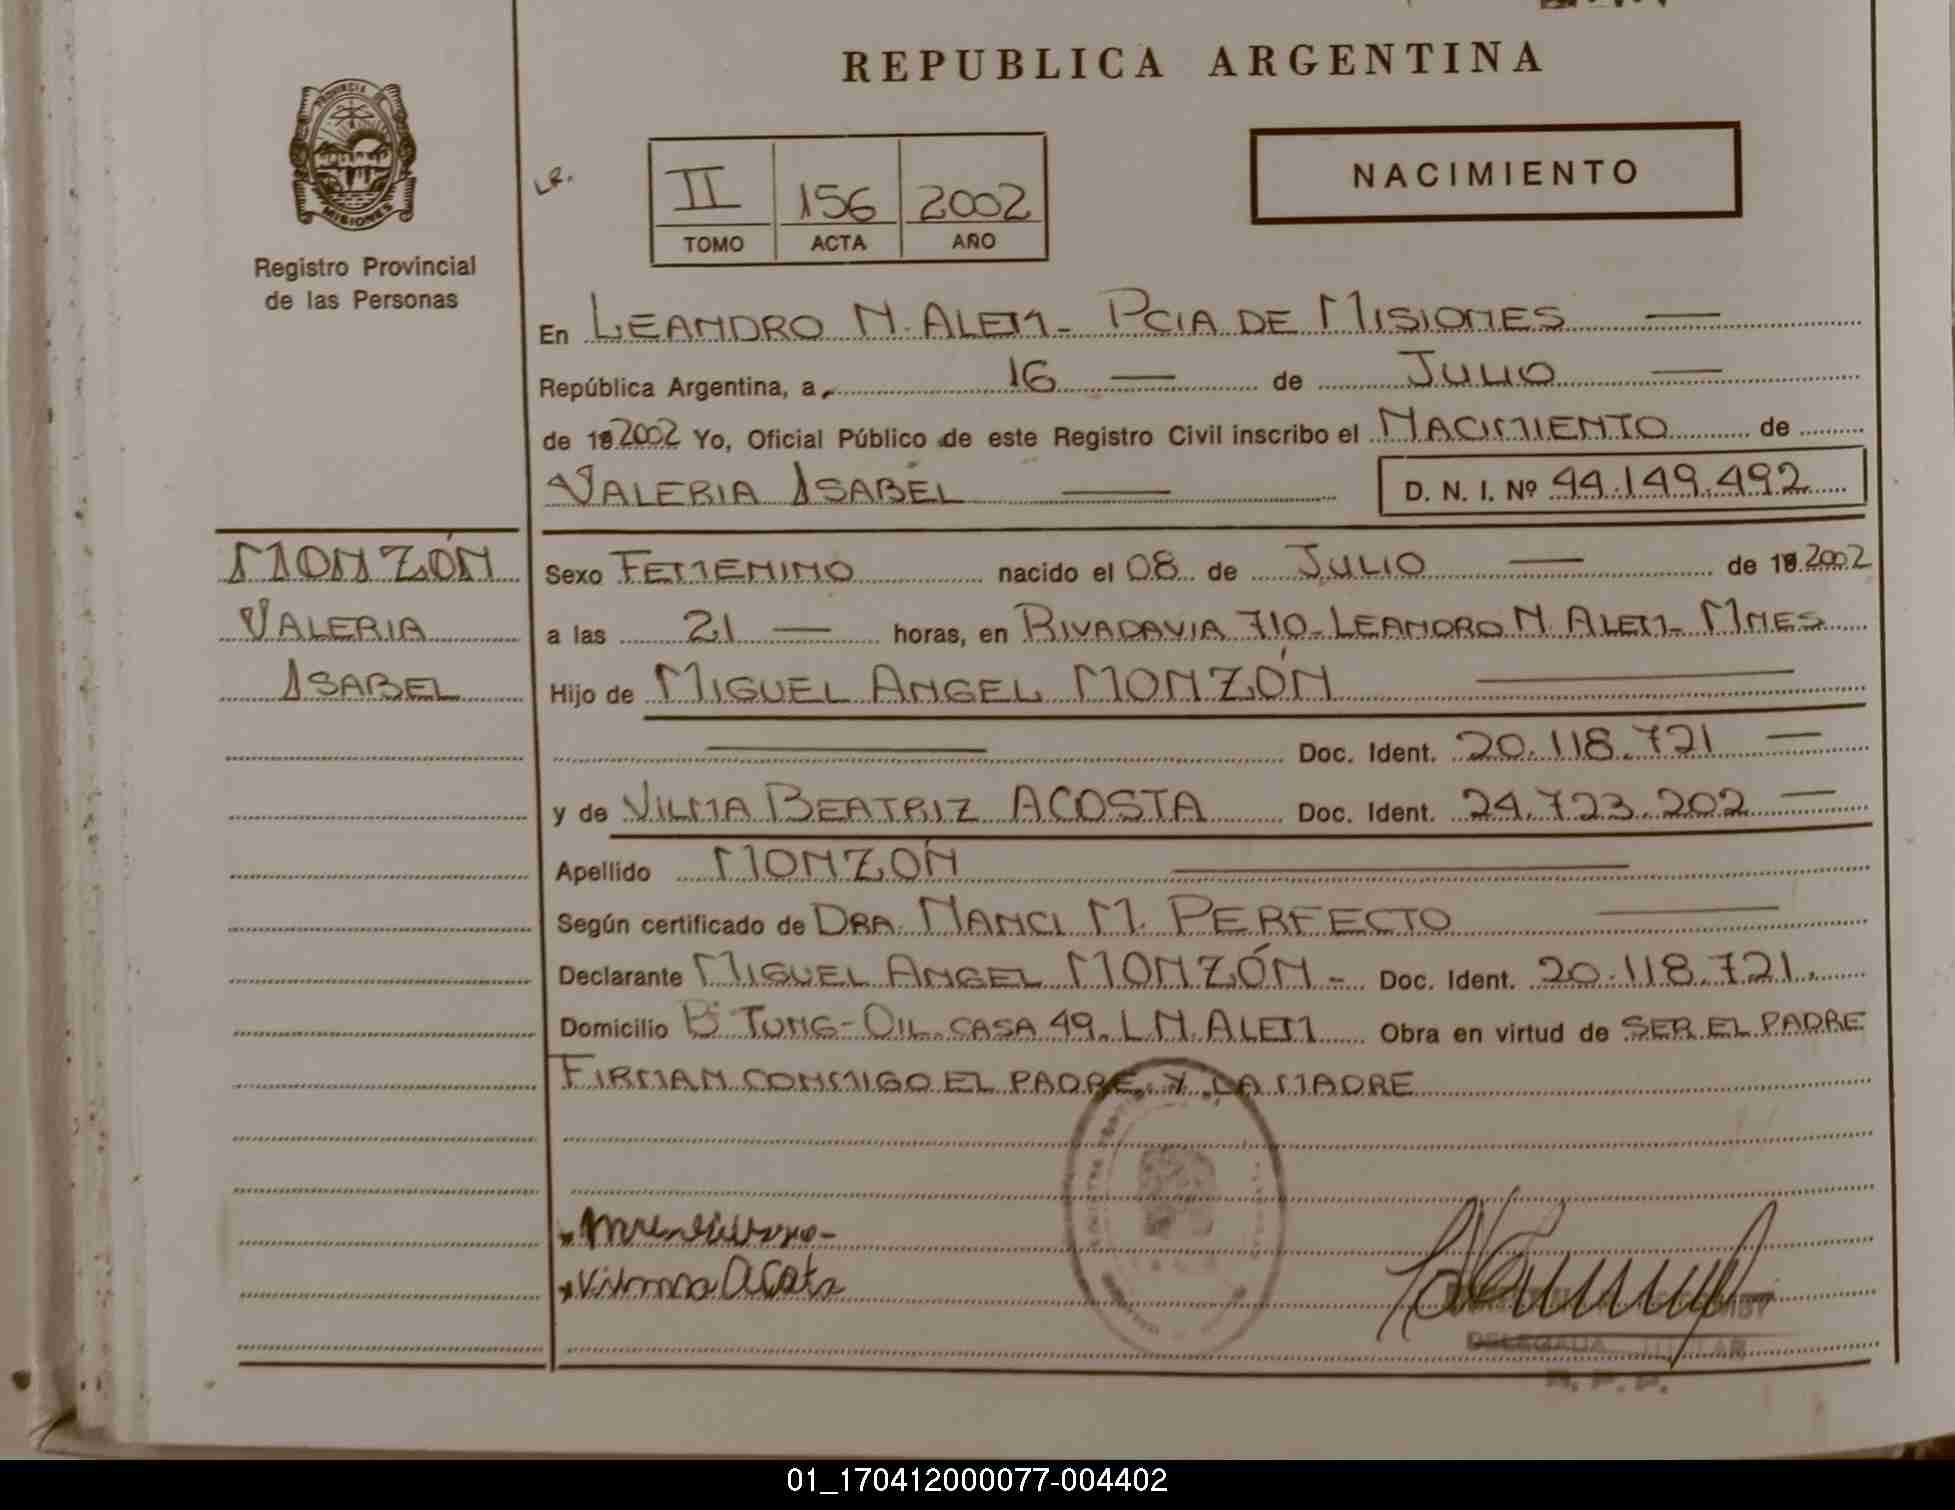 REPUBLICA ARGENTINA
PROVINCIA DE
MISIONES
Registro Provincial
de las Personas
LR.
II 156 2002
TOMO ACTA AÑO
NACIMIENTO
En LEANDRO N. ALEM - PCIA DE MISIONES —
República Argentina, a 16 — de JULIO —
de 19 2002 Yo, Oficial Público de este Registro Civil inscribo el NACIMIENTO de
VALERIA ISABEL — D. N. I. Nº 44.149.492
MONZÓN
VALERIA
ISABEL
Sexo FEMENINO nacido el 08 de JULIO — de 19 2002
a las 21 — horas, en RIVADAVIA 710 - LEANDRO N. ALEM - MNES
Hijo de MIGUEL ANGEL MONZÓN —
— Doc. Ident. 20.118.721 —
y de VILMA BEATRIZ ACOSTA Doc. Ident. 24.723.202 —
Apellido MONZÓN —
Según certificado de DRA. NANCI M. PERFECTO —
Declarante MIGUEL ANGEL MONZÓN - Doc. Ident. 20.118.721.
Domicilio Bº TUNG-OIL CASA 49. L.N. ALEM Obra en virtud de SER EL PADRE
FIRMAN CONMIGO EL PADRE Y LA MADRE
Vilma Acosta
DELEGADA TITULAR
R. P. P.
01_170412000077-004402